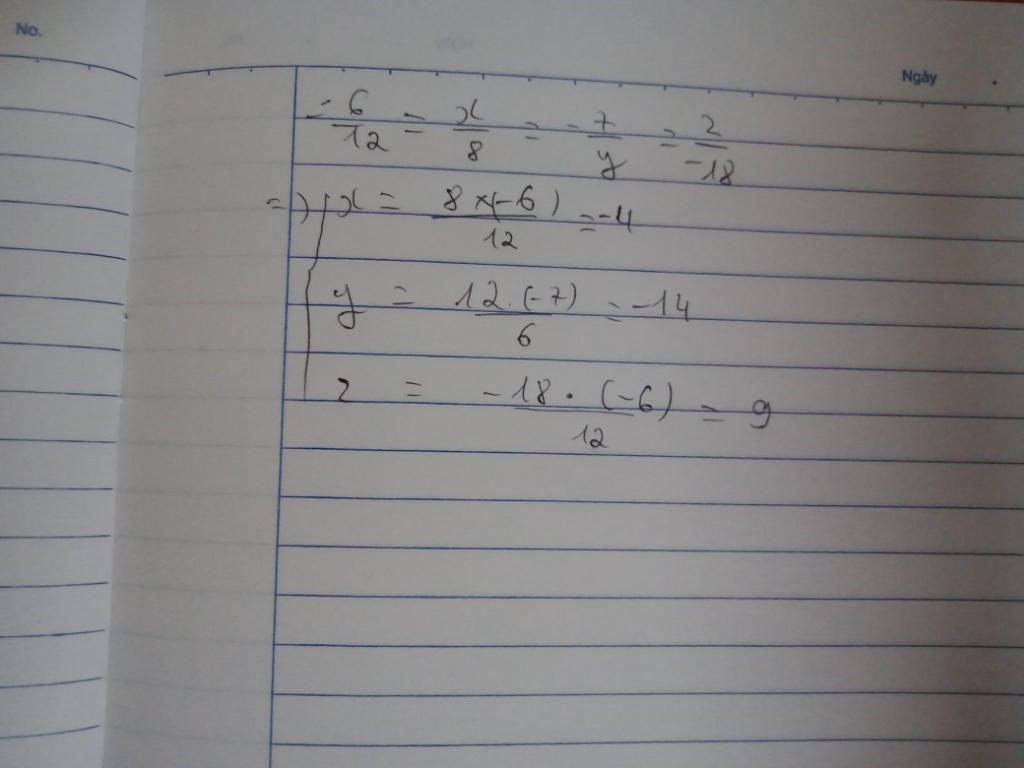 No.
Ngày
-6/12 = x/8 = -7/y = z/-18
=> { x = 8 × (-6) / 12 = -4
y = 12 . (-7) / 6 = -14
z = -18 . (-6) / 12 = 9